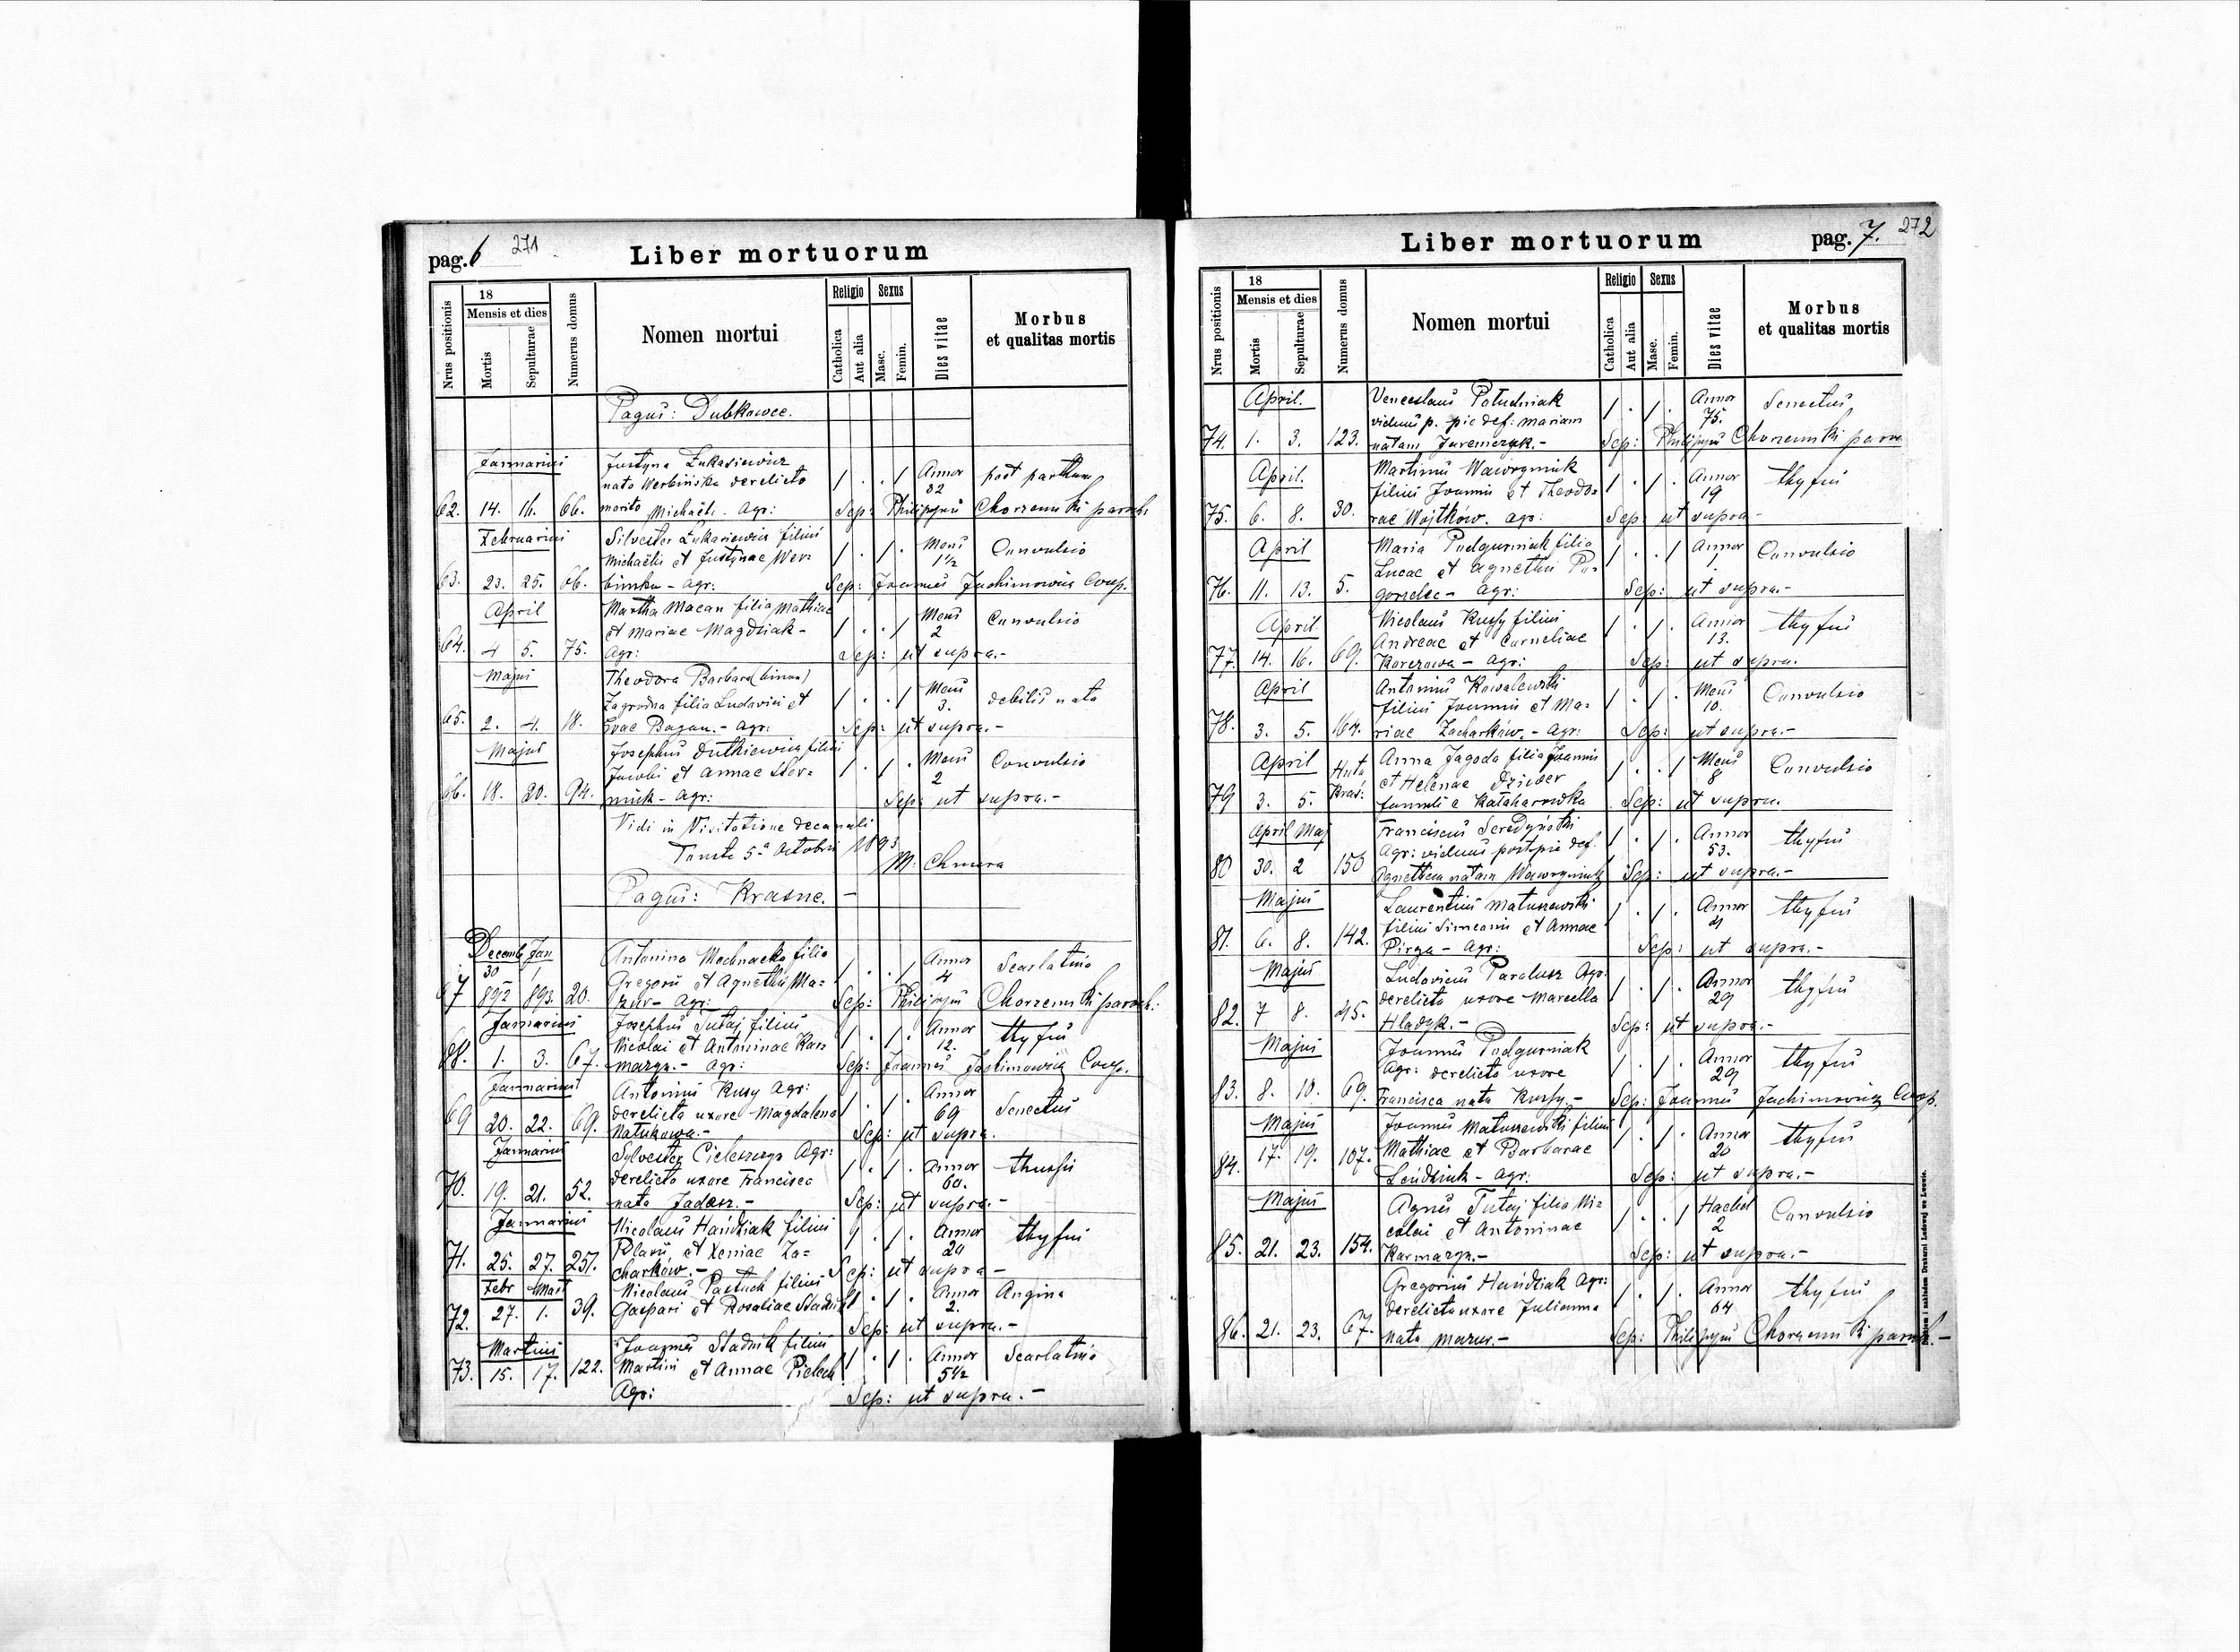 pag. 6 271
Liber mortuorum
Nrus positionis
18
Mensis et dies
Mortis
Sepulturae
Numerus domus
Nomen mortui
Religio
Catholica
Aut alia
Sexus
Masc.
Femin.
Dies vitae
Morbus
et qualitas mortis
Pagus: Dubkowce.
Januarius Justyna Łukasiewicz
nata Werbińska derelicto / . . / Annor 32 post partum
62. 14. 16. 66. marito Michaëli. Agr: Sep: Philippus Chorzemski paroch:
Februarius Silvester Łukasiewicz filius
Michaëlis et Justynae Wer= / . / . Mens 1½ Convulsio
63. 23. 25. 66. binska - agr: Sep: Joannes Jachimowicz Coop.
April Martha Macan filia Mathiae
et Mariae Magdziak - / . . / Mens 2 Convulsio
64. 4 5. 75. Agr: Sep: ut supra.-
Majus Theodora Barbara (binom)
Zagrodna filia Ludovici et / . . / Mens 3. debilis nata
65. 2. 4. 18. Evae Bagan. - Agr: Sep: ut supra.-
Majus Josephus Dutkiewicz filius
Jacobi et Annae Sker= / . / . Mens 2 Convulsio
66. 18. 20. 94. niuk - Agr: Sep: ut supra.-
Vidi in Visitatione decanali
Touste 5ª Octobris 1893
M. Chmura
Pagus: Krasne. -
Decemb Jan Antonina Machnacka filia
30 1 Gregorii et Agnethis Ma= / . . / Annor 4 Scarlatina
67 892 893. 20. zur - Agr: Sep: Philippus Chorzemski paroch:
Januarius Josephus Tutaj filius
Nicolai et Antoninae Kar= / . / . Annor 12. thyfus
68. 1. 3. 67. marga. - Agr: Sep: Joannes Jachimowicz Coop.
Januarius Antonius Rusy Agr:
derelicta uxore Magdalena / . / . Annor 69 Senectus
69 20. 22. 69. Natukowa.- Sep: ut supra.
Januarius Sylvester Cieleszuga Agr:
derelicta uxore Francisca / . / . Annor 60. thussis
70. 19. 21. 52. nata Jadasz.- Sep: ut supra.-
Januarius Nicolaus Hańdziak filius
et Xeniae Za= / . / . Annor 24 thyfus
71. 25. 27. 251. charków.- Sep: ut supra -
Febr Mart Nicolaus Pastuch filius
72. 27. 1. 39. Gaspari et Rosaliae Stadnik / . / . Annor 2. Angina
Sep: ut supra.-
Martius Joannes Stadnik filius
73. 15. 17. 122. Martini et Annae Pielech / . / . Annor 5½ Scarlatina
Agr: Sep: ut supra.-
Liber mortuorum
pag. 7. 272
Nrus positionis
18
Mensis et dies
Mortis
Sepulturae
Numerus domus
Nomen mortui
Religio
Catholica
Aut alia
Sexus
Masc.
Femin.
Dies vitae
Morbus
et qualitas mortis
April. Venceslaus Południak
viduus p. pie def: Mariam / . / . Annor 75. Senectus
74. 1. 3. 123. natam Jaremczyk.- Sep: Philippus Chorzemski paroc
April. Martinus Wawryniuk
filius Joannis et Theodo= / . / . Annor 19 thyfus
75. 6. 8. 30. rae Wojtków. agr: Sep: ut supra -
April Maria Podgurniak filia
Lucae et Agnethis Po= / . . / Annor 1. Convulsio
76. 11. 13. 5. gorzelec - Agr: Sep: ut supra.-
April Nicolaus Rusy filius
Andreae et Corneliae / . / . Annor 13. thyfus
77. 14. 16. 69. Karczowa - Agr: Sep: ut supra.
April Antonius Kowalewski
filius Joannis et Ma= / . / . Mens 10. Convulsio
78. 3. 5. 164. riae Zacharków.- Agr: Sep: ut supra.-
April Huta Anna Jagoda filia Joannis
et Helenae Dzider / . . / Mens 8 Convulsio
79 3. 5. Kras: famuli a Kałaharowka Sep: ut supra.
April Maj Franciscus Seredyński
Agr: viduus post pie def. / . / . Annor 53. thyfus
80 30. 2 150 Agnetham natam Wawryniuk Sep: ut supra.-
Majus Laurentius Matuszewski
filius Simeonis et Annae / . / . Annor 4 thyfus
81. 6. 8. 142. Pirga - Agr: Sep: ut supra.-
Majus Ludovicus Paralusz Agr.
derelicta uxore Marcella / . / . Annor 29 thyfus
82. 7 8. 45. Hladyk.- Sep: ut supra.-
Majus Joannes Podgurniak
Agr: derelicta uxore / . / . Annor 29 thyfus
83. 8. 10. 69. Francisca nata Rusy.- Sep: Joannes Jachimowicz Coop.
Majus Joannes Matuszewski filius
84. 17. 19. 107. Mathiae et Barbarae / . / . Annor 20 thyfus
Leńdziuk - agr: Sep: ut supra.-
Majus Agnes Tutaj filia Ni=
colai et Antoninae / . . / 2 Convulsio
85. 21. 23. 154. Karmarga.- Sep: ut supra.-
Gregorius Hańdziak Agr:
derelicta uxore Julianna / . / . Annor 64 thyfus
86. 21. 23. 67. nata Mazur.- Sep: Philippus Chorzemski paroch.-
nakładem Drukarni Ludowej we Lwowie.